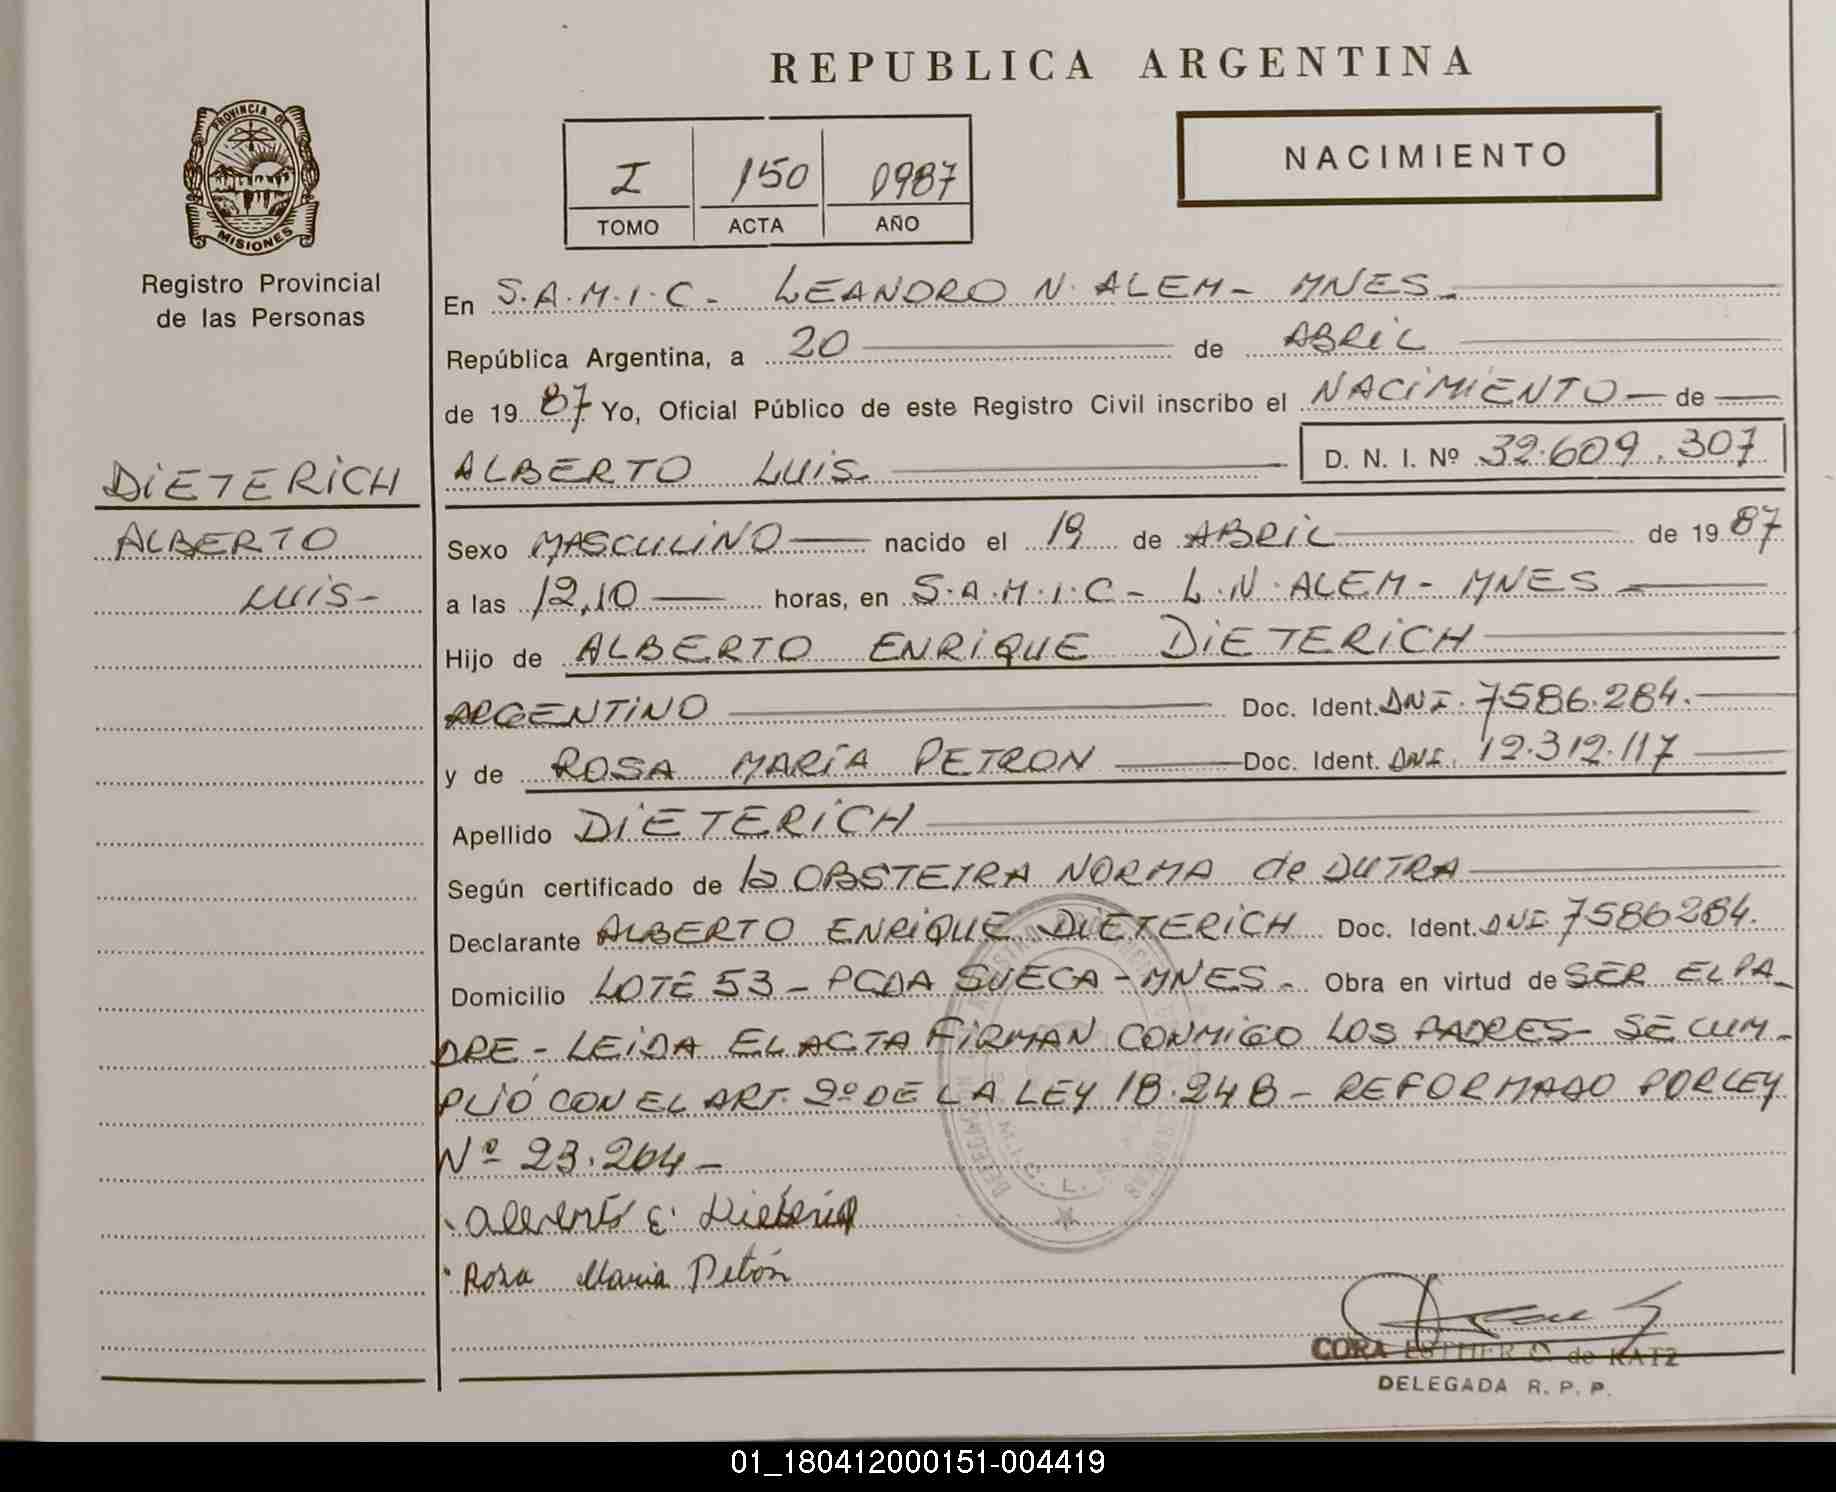 REPUBLICA ARGENTINA
PROVINCIA DE
MISIONES
Registro Provincial
de las Personas
I 150 1987
TOMO ACTA AÑO
NACIMIENTO
En S.A.M.I.C - LEANDRO N. ALEM - MNES -
República Argentina, a 20 de ABRIL
de 1987 Yo, Oficial Público de este Registro Civil inscribo el NACIMIENTO de
ALBERTO LUIS. D. N. I. Nº 32.609.307
DIETERICH
ALBERTO
LUIS -
Sexo MASCULINO nacido el 19 de ABRIL de 1987
a las 12,10 horas, en S.A.M.I.C - L.N. ALEM - MNES -
Hijo de ALBERTO ENRIQUE DIETERICH
ARGENTINO Doc. Ident. DNI. 7586.284.
y de ROSA MARÍA PETRON Doc. Ident. DNI. 12.312.117
Apellido DIETERICH
Según certificado de la OBSTETRA NORMA de DUTRA
Declarante ALBERTO ENRIQUE DIETERICH Doc. Ident. DNI 7586284.
Domicilio LOTE 53 - PCDA SUECA - MNES - Obra en virtud de SER EL PA-
DRE - LEIDA EL ACTA FIRMAN CONMIGO LOS PADRES - SE CUM-
PLIÓ CON EL ART. 2º DE LA LEY 18.248 - REFORMADO POR LEY
Nº 23.264 -
Alberto E. Dieterich
Rosa Maria Petrón
CORA ESTHER C. de KATZ
DELEGADA R. P. P.
01_180412000151-004419